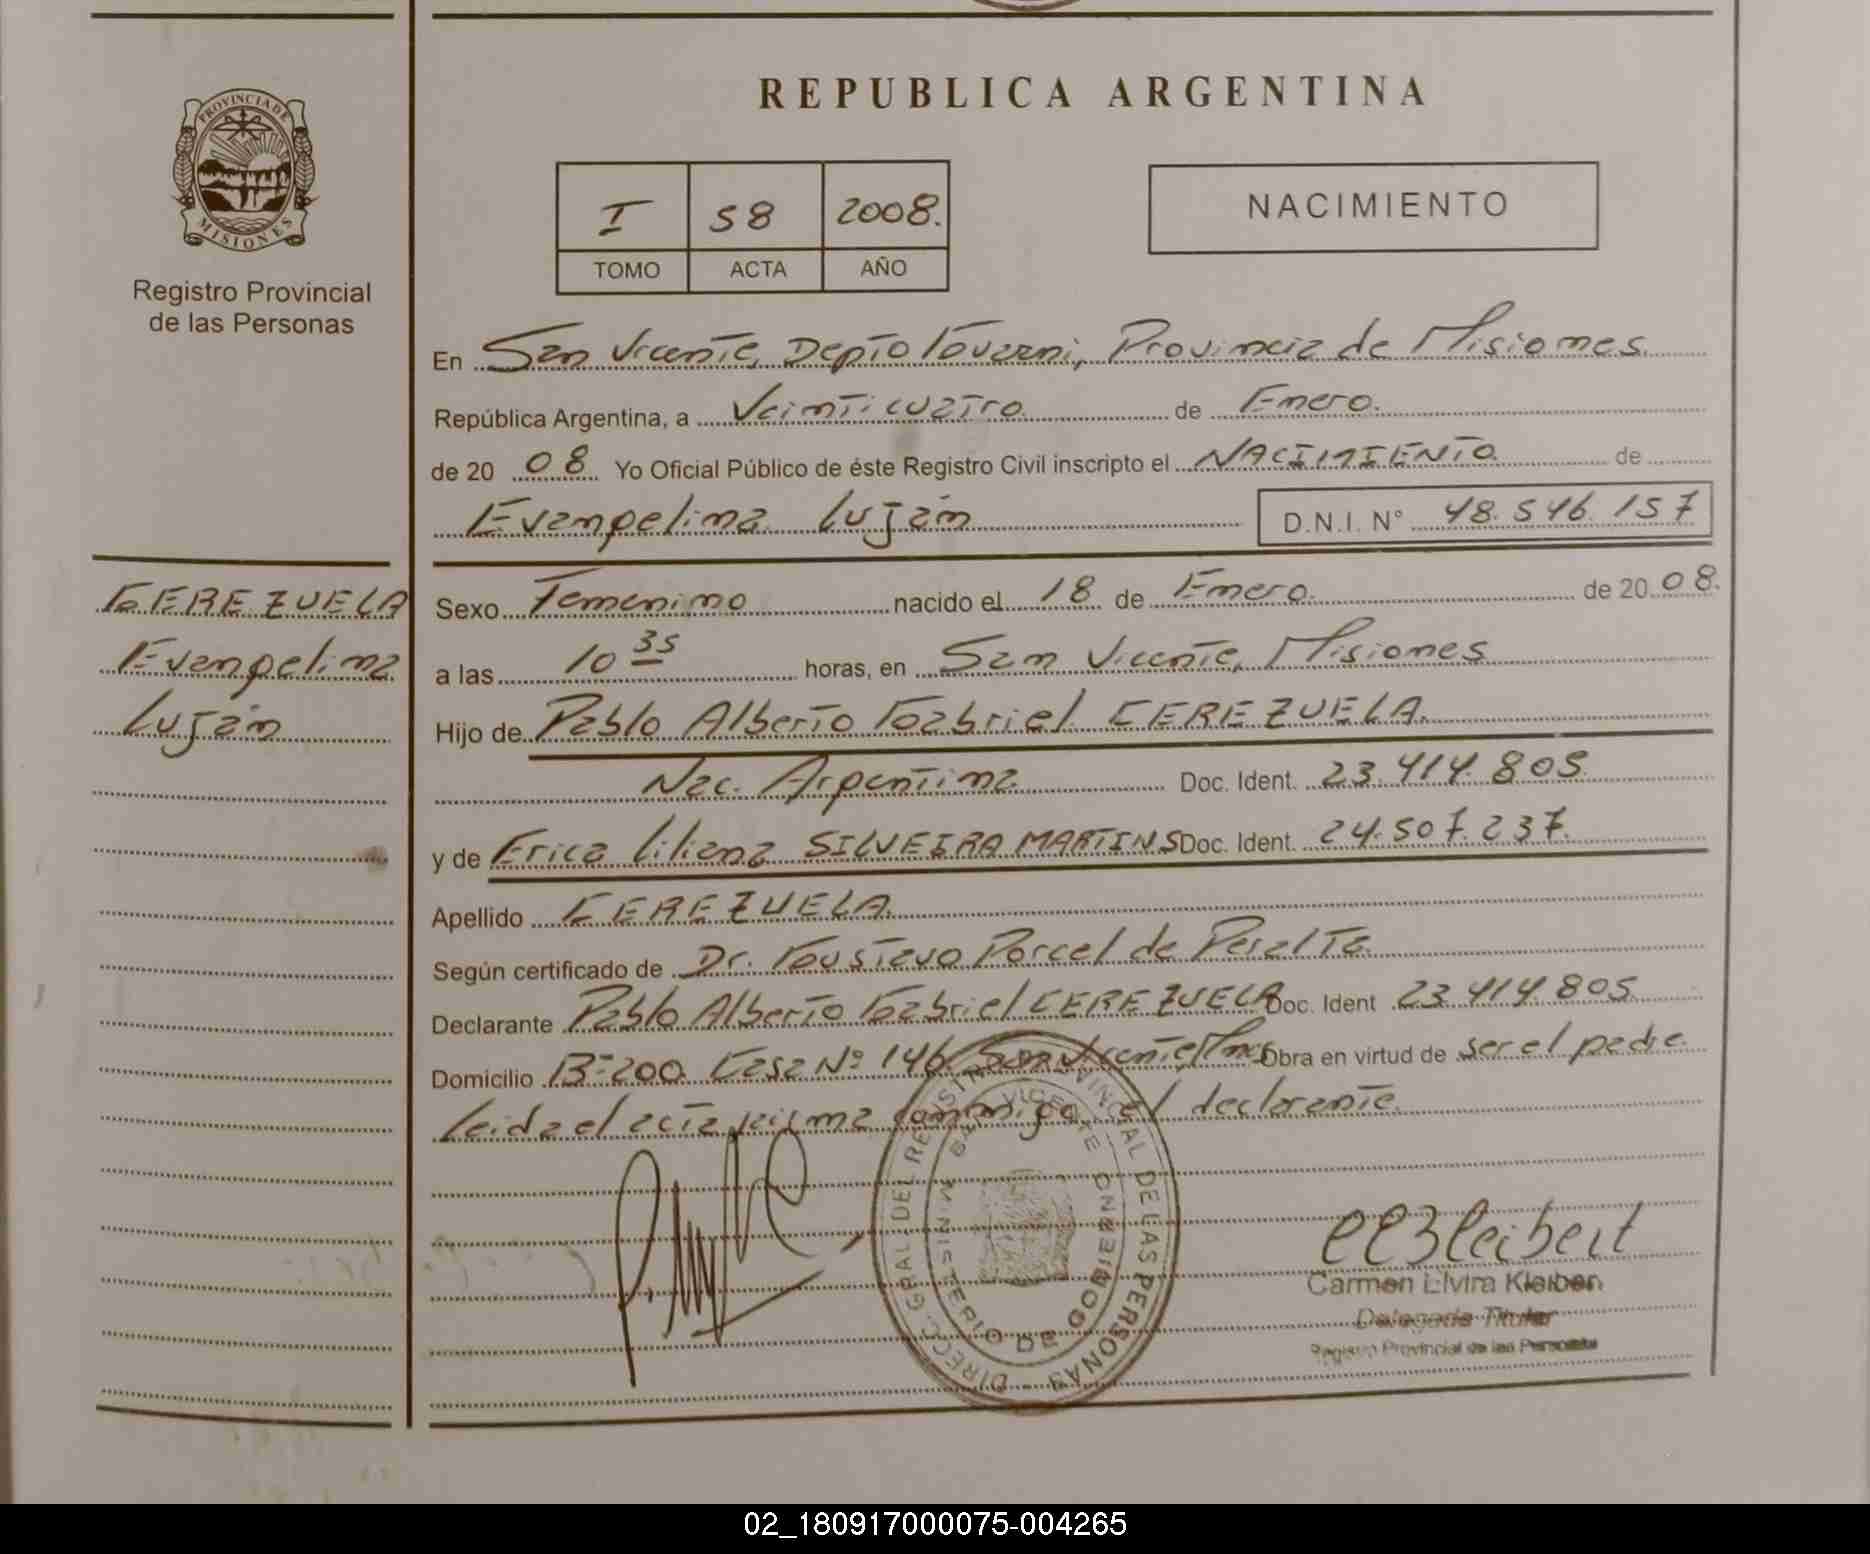 REPUBLICA ARGENTINA
PROVINCIA DE MISIONES
Registro Provincial
de las Personas
I 58 2008.
TOMO ACTA AÑO
NACIMIENTO
En San Vicente, Depto Guaraní, Provincia de Misiones
República Argentina, a Veinticuatro de Enero.
de 20 08 Yo Oficial Público de éste Registro Civil inscripto el NACIMIENTO de
Evangelina Luján D.N.I. N° 48.546.157
CEREZUELA
Evangelina
Luján
Sexo Femenino nacido el 18 de Enero. de 20 08.
a las 10 35 horas, en San Vicente, Misiones
Hijo de Pablo Alberto Gabriel CEREZUELA
Nac. Argentina Doc. Ident. 23.414.805
y de Erica Liliana SILVEIRA MARTINS Doc. Ident. 24.507.237.
Apellido CEREZUELA
Según certificado de Dr. Gustavo Porcel de Peralta
Declarante Pablo Alberto Gabriel CEREZUELA Doc. Ident 23.414.805
Domicilio B-200 Casa Nº 146 San Vicente, Mnes Obra en virtud de ser el padre
Leida el acta firma conmigo el declarante
DIRECC. GRAL. DEL REGISTRO PROVINCIAL DE LAS PERSONAS
SAN VICENTE
MINISTERIO DE GOBIERNO
Carmen Elvira Kleiber
Delegada Titular
Registro Provincial de las Personas
02_180917000075-004265